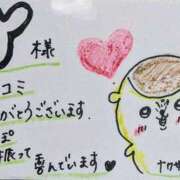 様
コミ
がとうございます.
ぽ
振って
喜んでいます